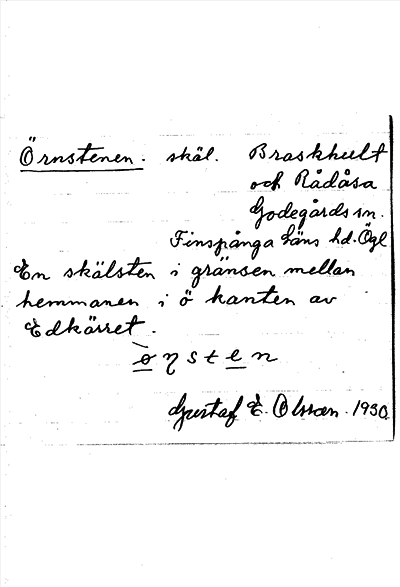 Örnstenen. skäl. Braskhult
och Rådåsa
Godegårds sn.
Finspånga läns hd. Ögl
En skälsten i gränsen mellan
hemmanen i ö kanten av
Edkärret.
ø̀ηsten
Gustaf E. Olsson. 1930.